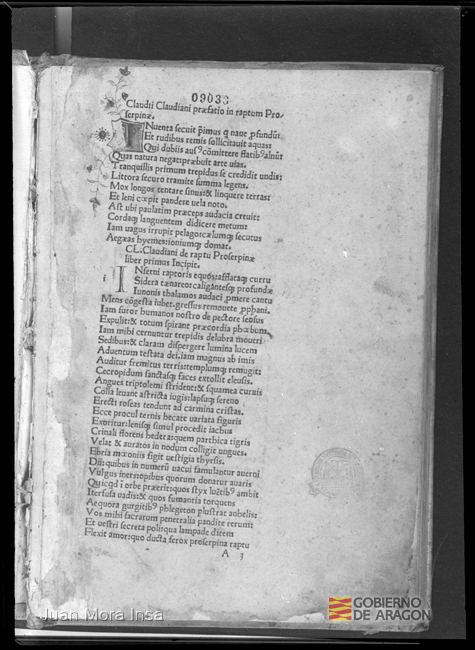 09033
Claudii Claudiani præfatio in raptum Pro-
serpinæ.
INuenta secuit p̄imus q̄ naue ꝓfundũ
Et rudibus remis sollicitauit aquas:
Qui dubiis ausꝰ cõmittere flatibꝰ alnũ
Quas natura negat: præbuit arte uias.
Tranquillis primum trepidus se credidit undis:
Littora securo tramite summa legens.
Mox longos tentare sinus: & linquere terras:
Et leni cœpit pandere uela noto.
Ast ubi paulatim præceps audacia creuit:
Cordaq; languentem didicere metum:
Iam uagus irrupit pelago: cælumq; secutus
Aegæas hyemes: ioniumq; domat.
CL: Claudiani de raptu Proserpinæ
liber primus Incipit.
INferni raptoris equos: afflataq; curru
Sidera tænareo: caligantesq; profundæ
Iunonis thalamos audaci ꝓmere cantu
Mens cõgesta iubet. gressus remouete ꝓphani.
Iam furor humanos nostro de pectore sensus
Expulit: & totum spirant præcordia phœbum.
Iam mihi cernuntur trepidis delubra moueri
Sedibus: & claram dispergere lumina lucem
Aduentum testata dei. iam magnus ab imis
Auditur fremitus terris: templumq; remugit
Cecropidum sanctasq; faces extollit eleusis.
Angues triptolemi strident: & squamea curuis
Colla leuant astricta iugis: lapsuq; sereno
Erecti roseas tendunt ad carmina cristas.
Ecce procul ternis hecate uariata figuris
Exoritur: lenisq; simul procedit iachus
Crinali florens hedera: quem parthica tigris
Velat & auratos in nodum colligit ungues.
Ebria mæoniis figit uestigia thyrsis.
Dii: quibus in numerũ uacui famulantur auerni
Vulgus iners: opibus quorum donatur auaris
Quicqd ĩ orbe p̱erit: quos styx luctibꝰ ambit
Iterfusa uadis: & quos fumantia torquens
Aequora gurgitibꝰ phlegeton plustrat anhelis:
Vos mihi sacrarum penetralia pandite rerum:
Et uestri secreta poli: qua lampade ditem
Flexit amor: quo ducta ferox proserpina raptu
A 3
Juan Mora Insa
GOBIERNO
DE ARAGON